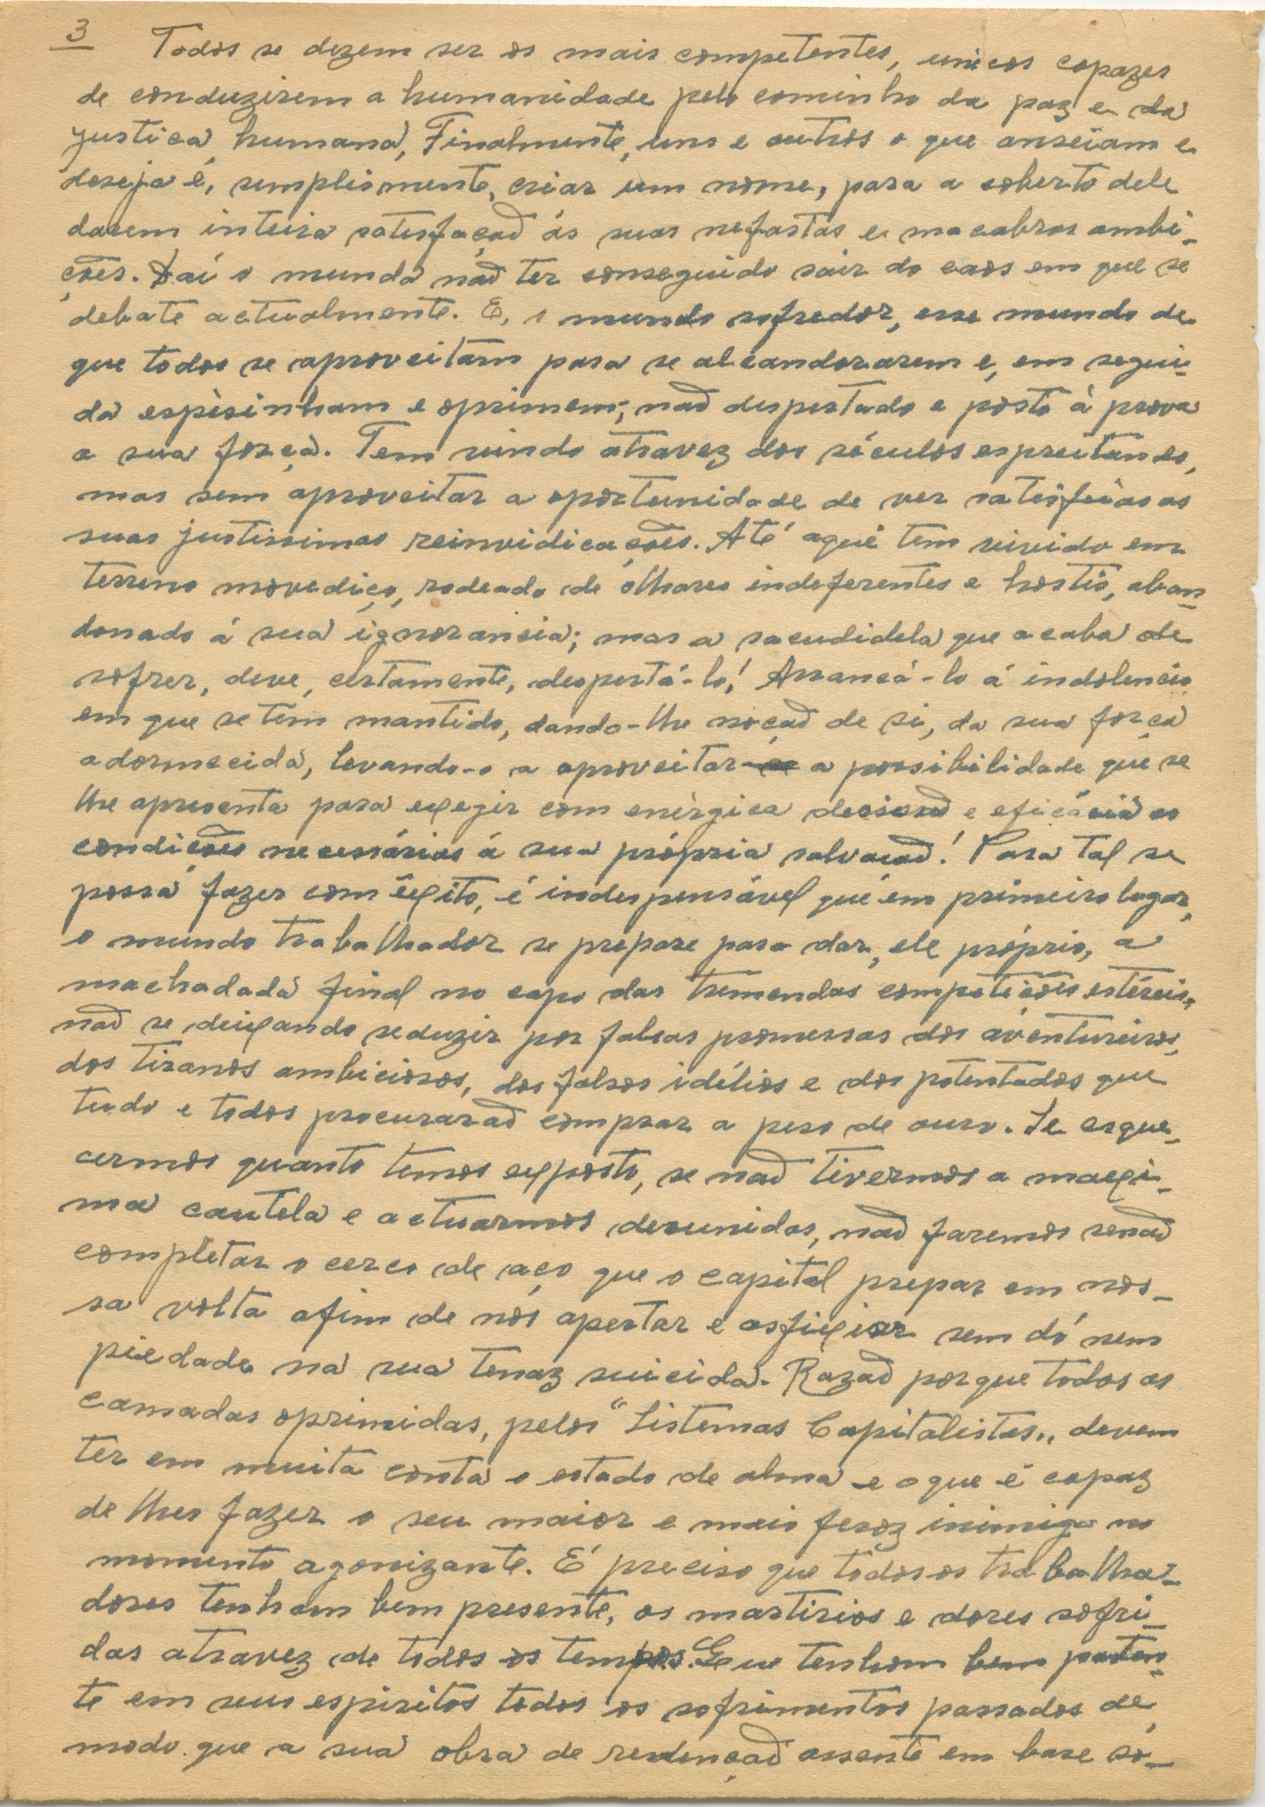 3
Todos se dizem ser os mais competentes, unicos capazes
de conduzirem a humanidade pelo caminho da paz e da
justiça humana, Finalmente, uns e outros o que anseiam e
deseja é, simplismente, criar um nome, para a coberto dele
darem inteira satisfação ás suas nefastas e macabras ambi-
ções. Daí o mundo não ter conseguido sair do caos em que se
debate actualmente. E, o mundo sofredor, esse mundo de
que todos se aproveitam para se alcandorarem e, em segui-
da espèsinham e oprimem; não despertado e posto á prova
a sua força. Tem vindo atravez dos séculos espreitando,
mas sem aproveitar a oportunidade de ver satisfeitas as
suas justissimas reinvidicações. Até aqui tem vivido em
terreno movediço, rodeado de olhares indeferentes e hostis, aban-
donado á sua ignorancia; mas a sacudidela que acaba de
sofrer, deve, certamente, despertá-lo! Arrancá-lo á indolencia
em que se tem mantido, dando-lhe noção de si, da sua força
adormecida, levando-o a aproveitar a possibilidade que se
lhe apresenta para exegir com enèrgica decisão e eficácia as
condições necessárias á sua própria salvação! Para tal se
possa fazer com êxito, é indespensável que em primeiro lugar,
o mundo trabalhador se prepare para dar, ele próprio, a
machadada final no capo das tremendas competições estéreis,
não se deixando seduzir por falsas promessas dos aventureiros,
dos tiranos ambiciosos, dos falsos idélios e dos potentados que
tudo e todos procurarão comprar a peso de ouro. Se esque-
cermos quanto temos exposto, se não tivermos a maxi-
ma cautela e actuarmos desunidos, não faremos senão
completar o cerco de aço que o capital prepar em nos-
sa volta afim de nós apertar e asfixiar sem dó nem
piedade na sua tenaz suicida. Razão porque todos as
camadas oprimidas, pelos "Sistemas Capitalistas", devem
ter em muita conta o estado de alma e o que é capaz
de lhes fazer o seu maior e mais feroz inimigo no
momento agonizante. É preciso que todos os trabalha-
dores tenham bem presente, os martirios e dores sofri-
das atravez de todos os tempos. Que tenham bem paten-
te em seus espiritos todos os sofrimentos passados de
modo que a sua obra de redenção assente em base só-